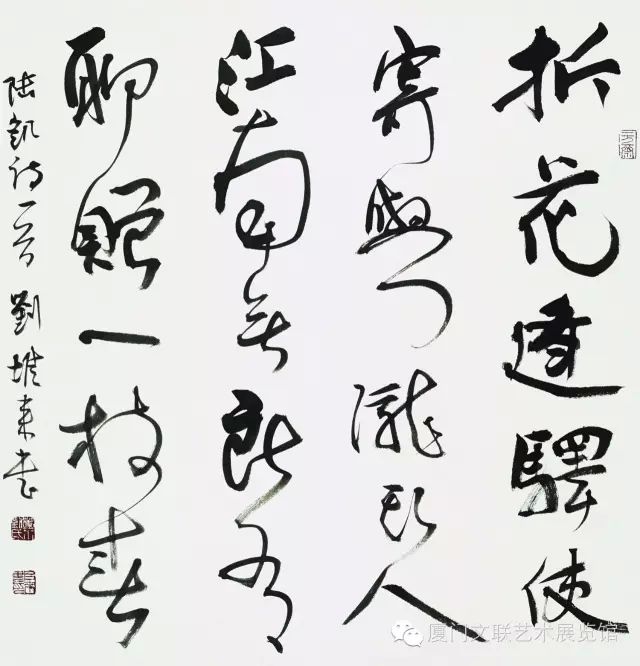 折花逢驛使
寄與隴頭人
江南無所有
聊贈一枝春
陸凱詩一首 劉堆來書
厦门文联艺术展览馆